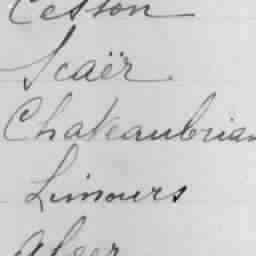 Cesson
Scaër.
Chateaubrian
Limours
Alger